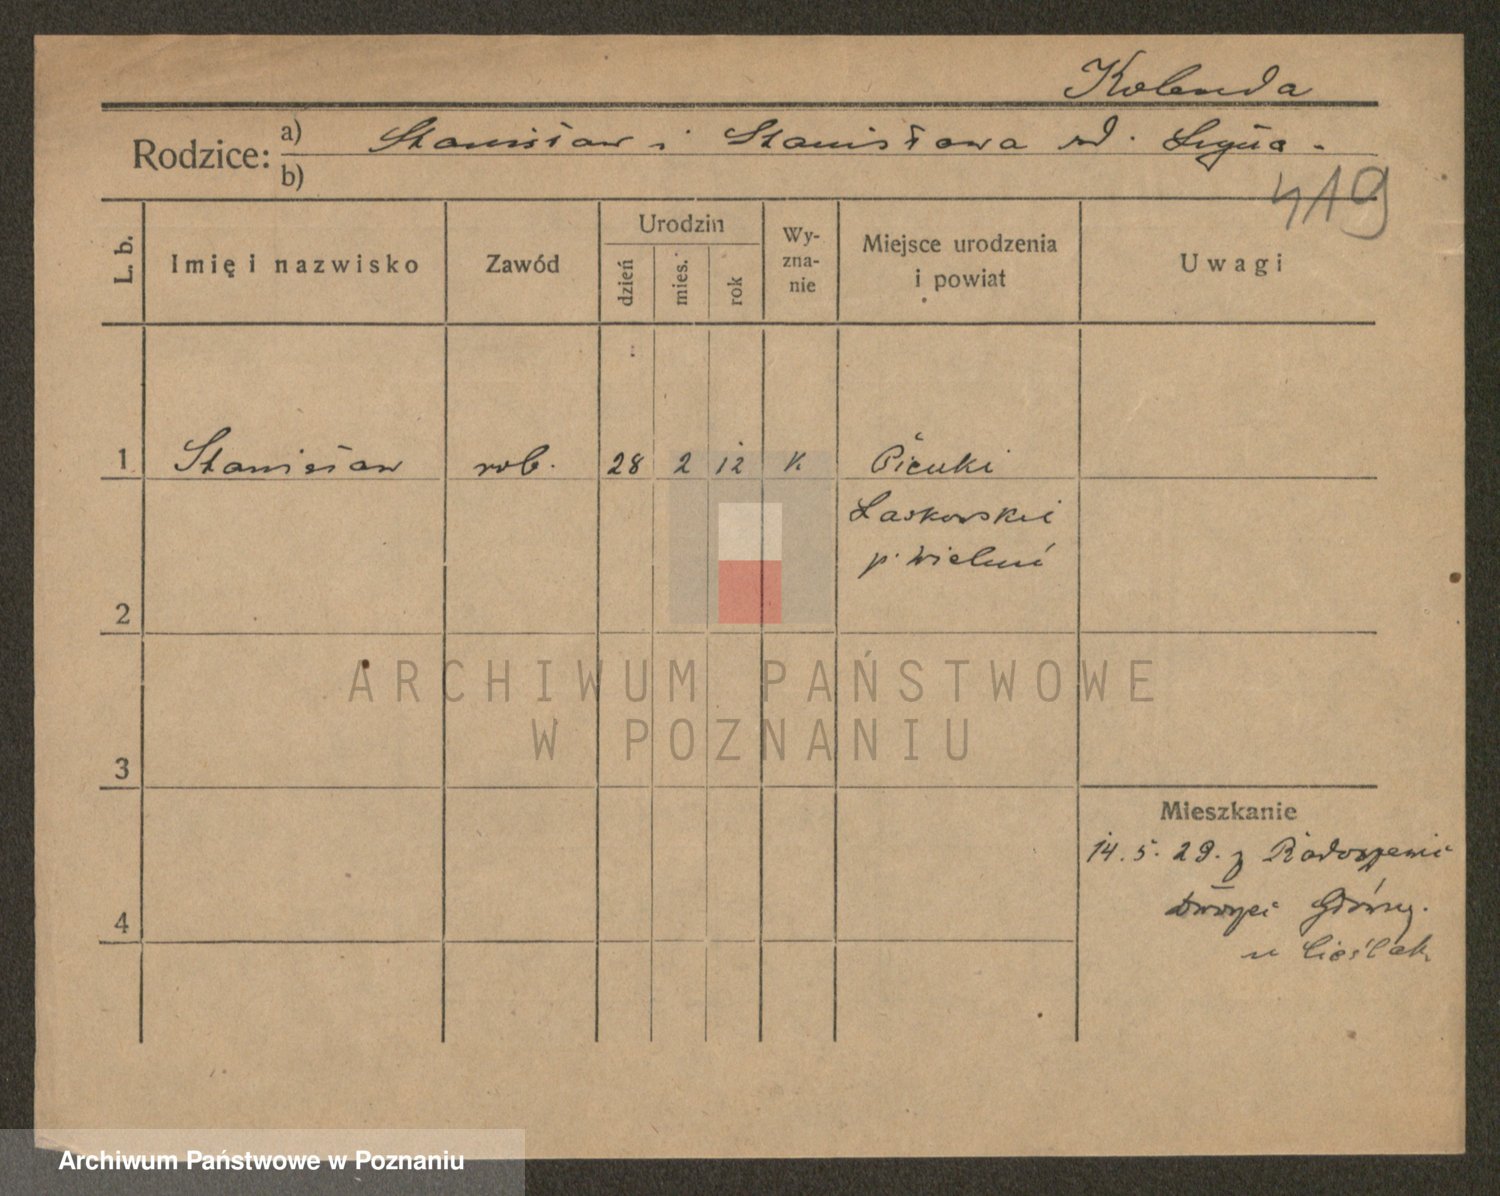 Kolenda
Rodzice: a) Stanisław i Stanisława rd.
b)
419
L. b. Imię i nazwisko Zawód Urodzin dzień mies. rok Wy-zna-nie Miejsce urodzenia i powiat Uwagi
1 Stanisław rob. 28 2 12 K Pieńki
Laskowskie
p. Wieluń
2
3
Mieszkanie
14. 5. 29. z
4
u Cieślak
ARCHIWUM PAŃSTWOWE
W POZNANIU
Archiwum Państwowe w Poznaniu